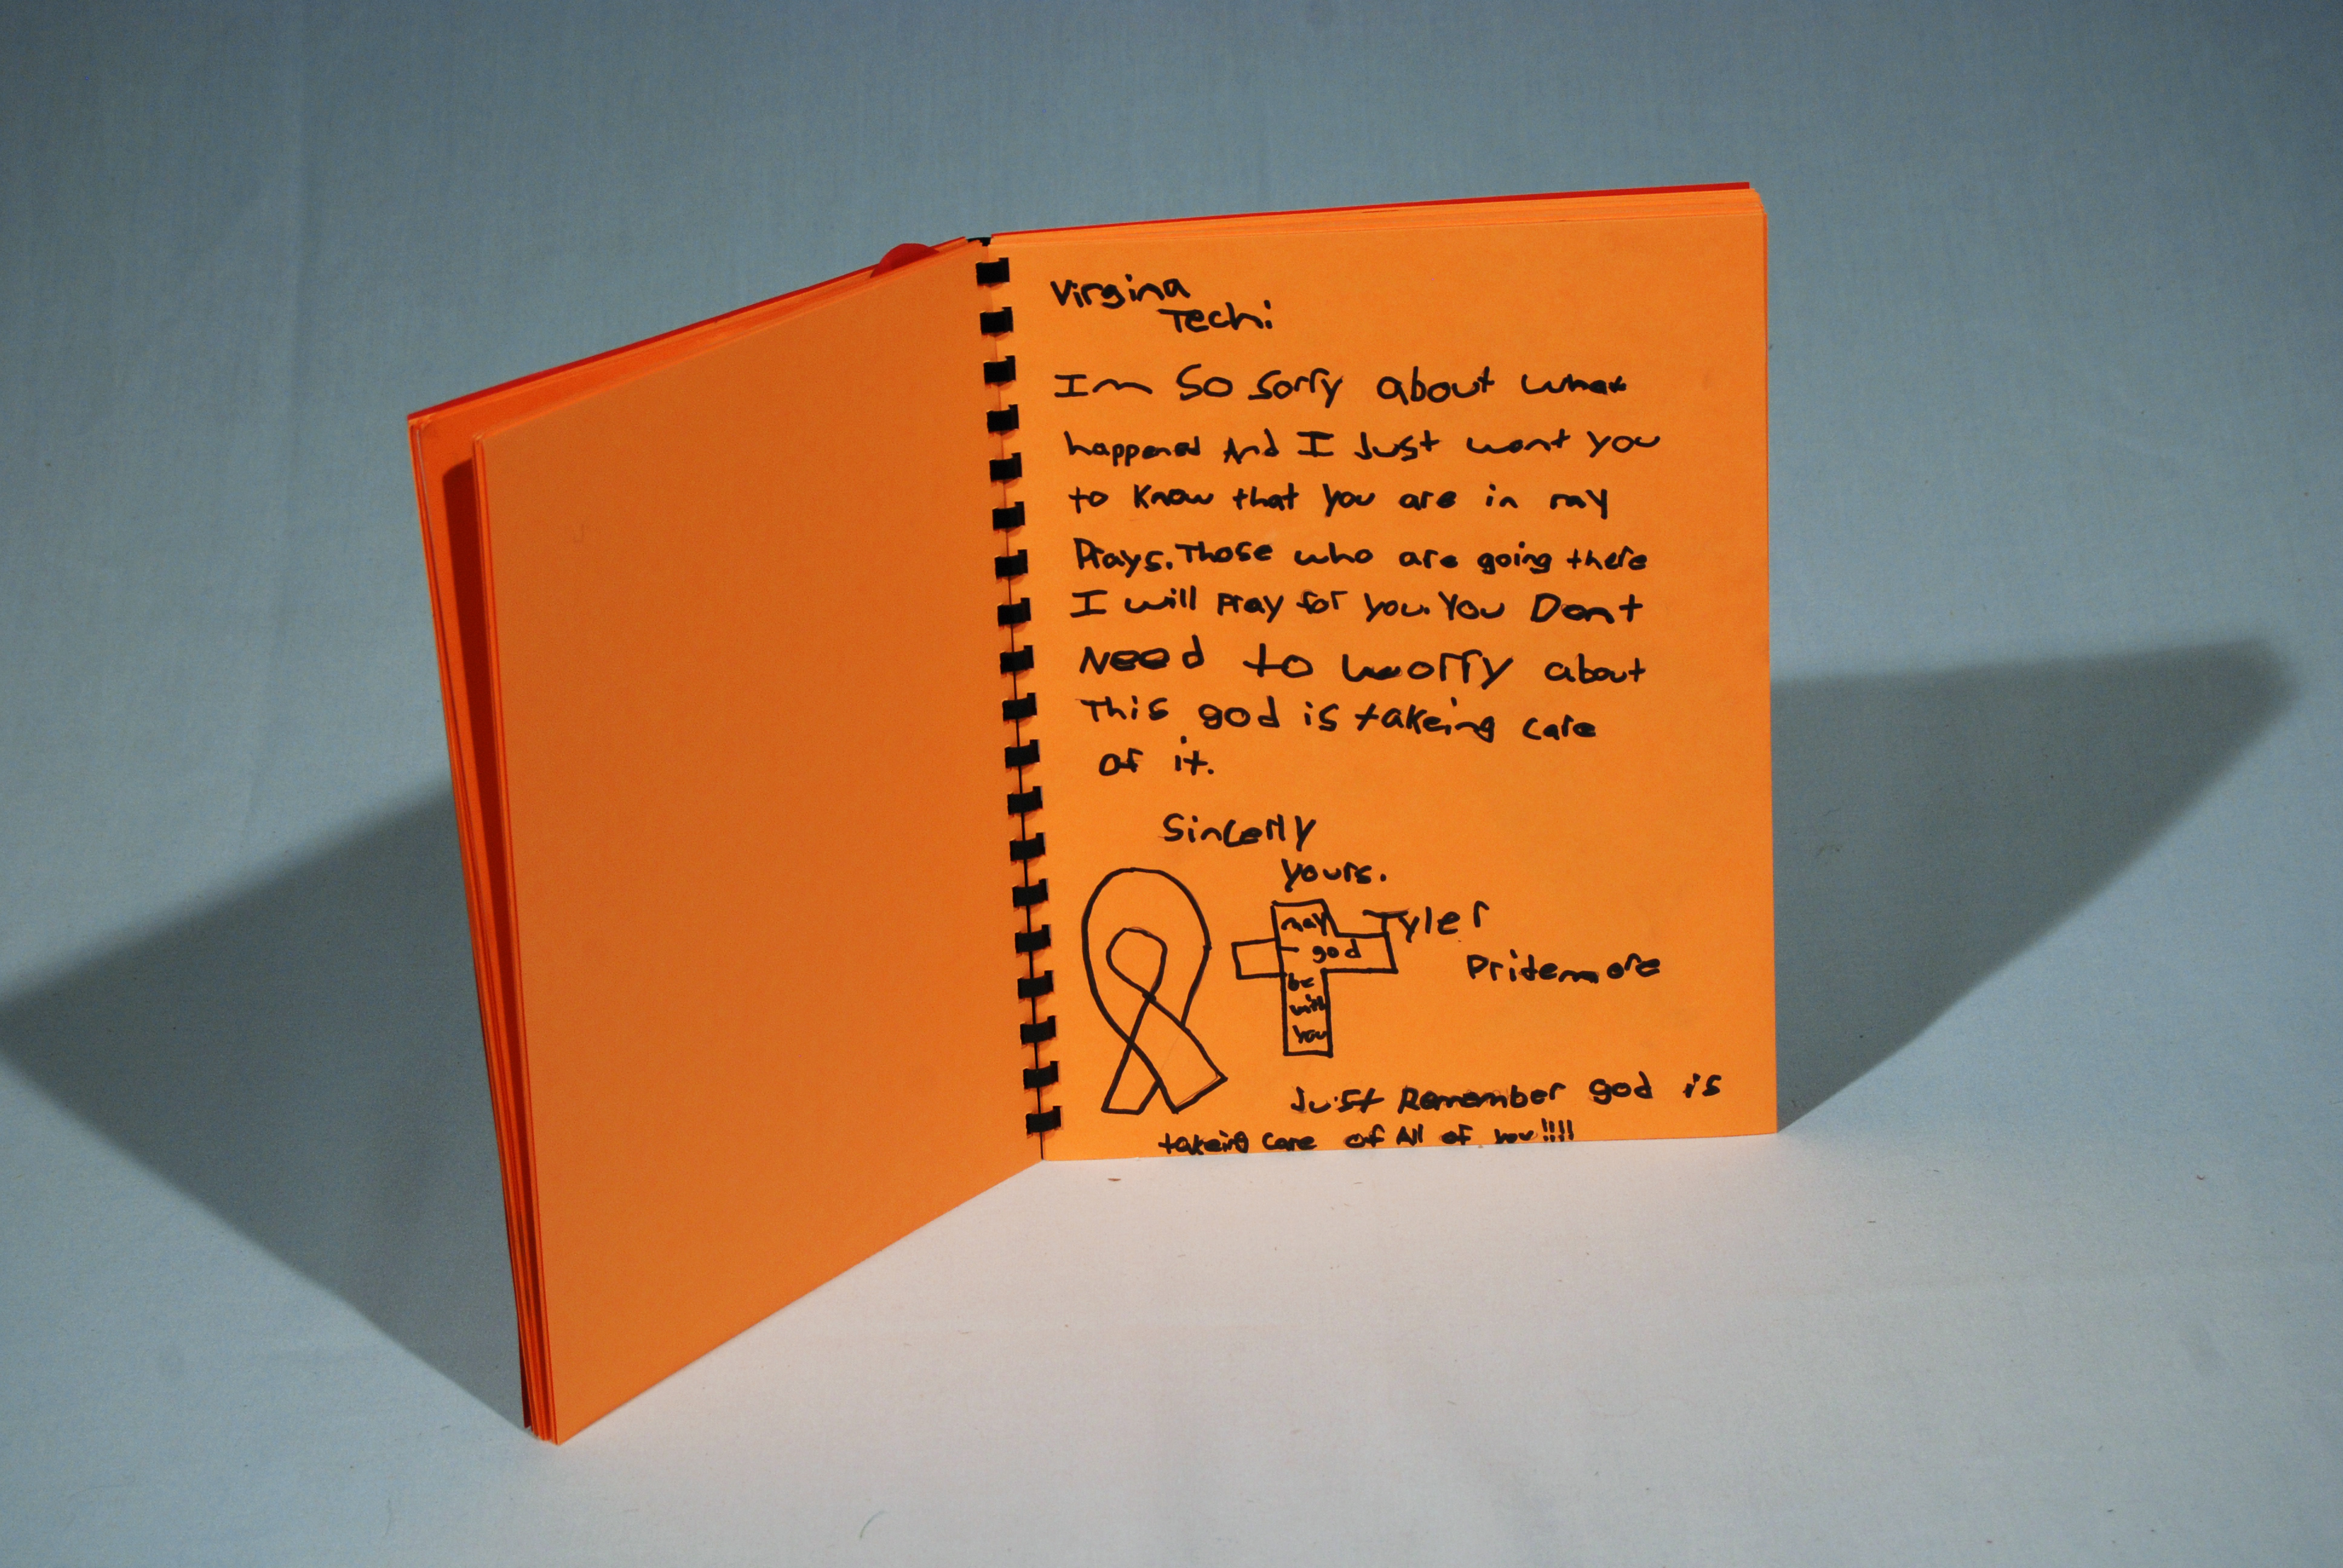 Virgina
Tech:
Im So sorry about what
happened And I Just want you
to Know that you are in my
Prays. Those who are going there
I will Pray for you. You Dont
Need to worry about
This god is takeing care
of it.
Sincerly
yours.
Tyler
Pridemore
may
god
be
with
you
Just Remember god is
takeing care of All of you!!!!